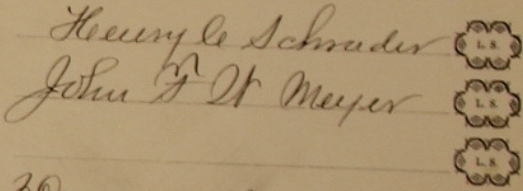 Henry C Schrader L. S.
John F W Meyer L. S.
L. S.